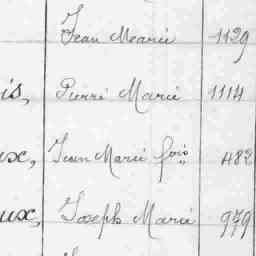 Jean Marie 1129
is, Pierre Marie 1114
ux, Jean Marie fois 482
ux, Joseph Marie 979